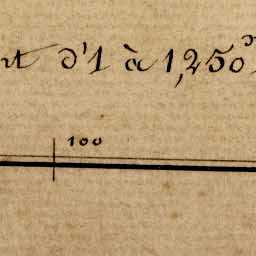 nt d'1 à 1,250
100